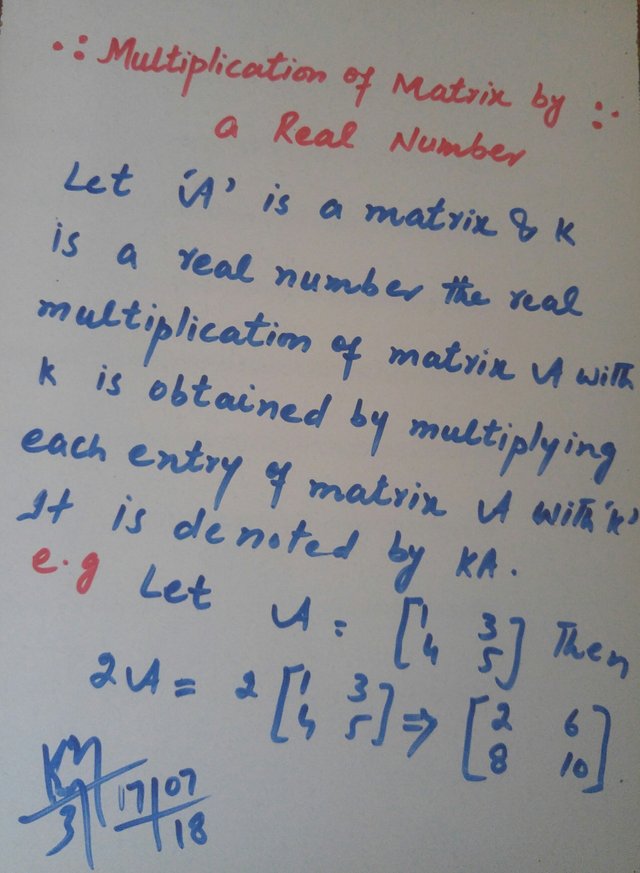 ∴ Multiplication of Matrix by ∵
a Real Number
Let 'A' is a matrix & K
is a real number the real
multiplication of matrix A with
K is obtained by multiplying
each entry of matrix A with 'K'
It is denoted by KA.
e.g Let A = [1 3 Then
4 5]
2A = 2 [1 3 ⇒ [2 6
4 5] 8 10]
17/07
3 18